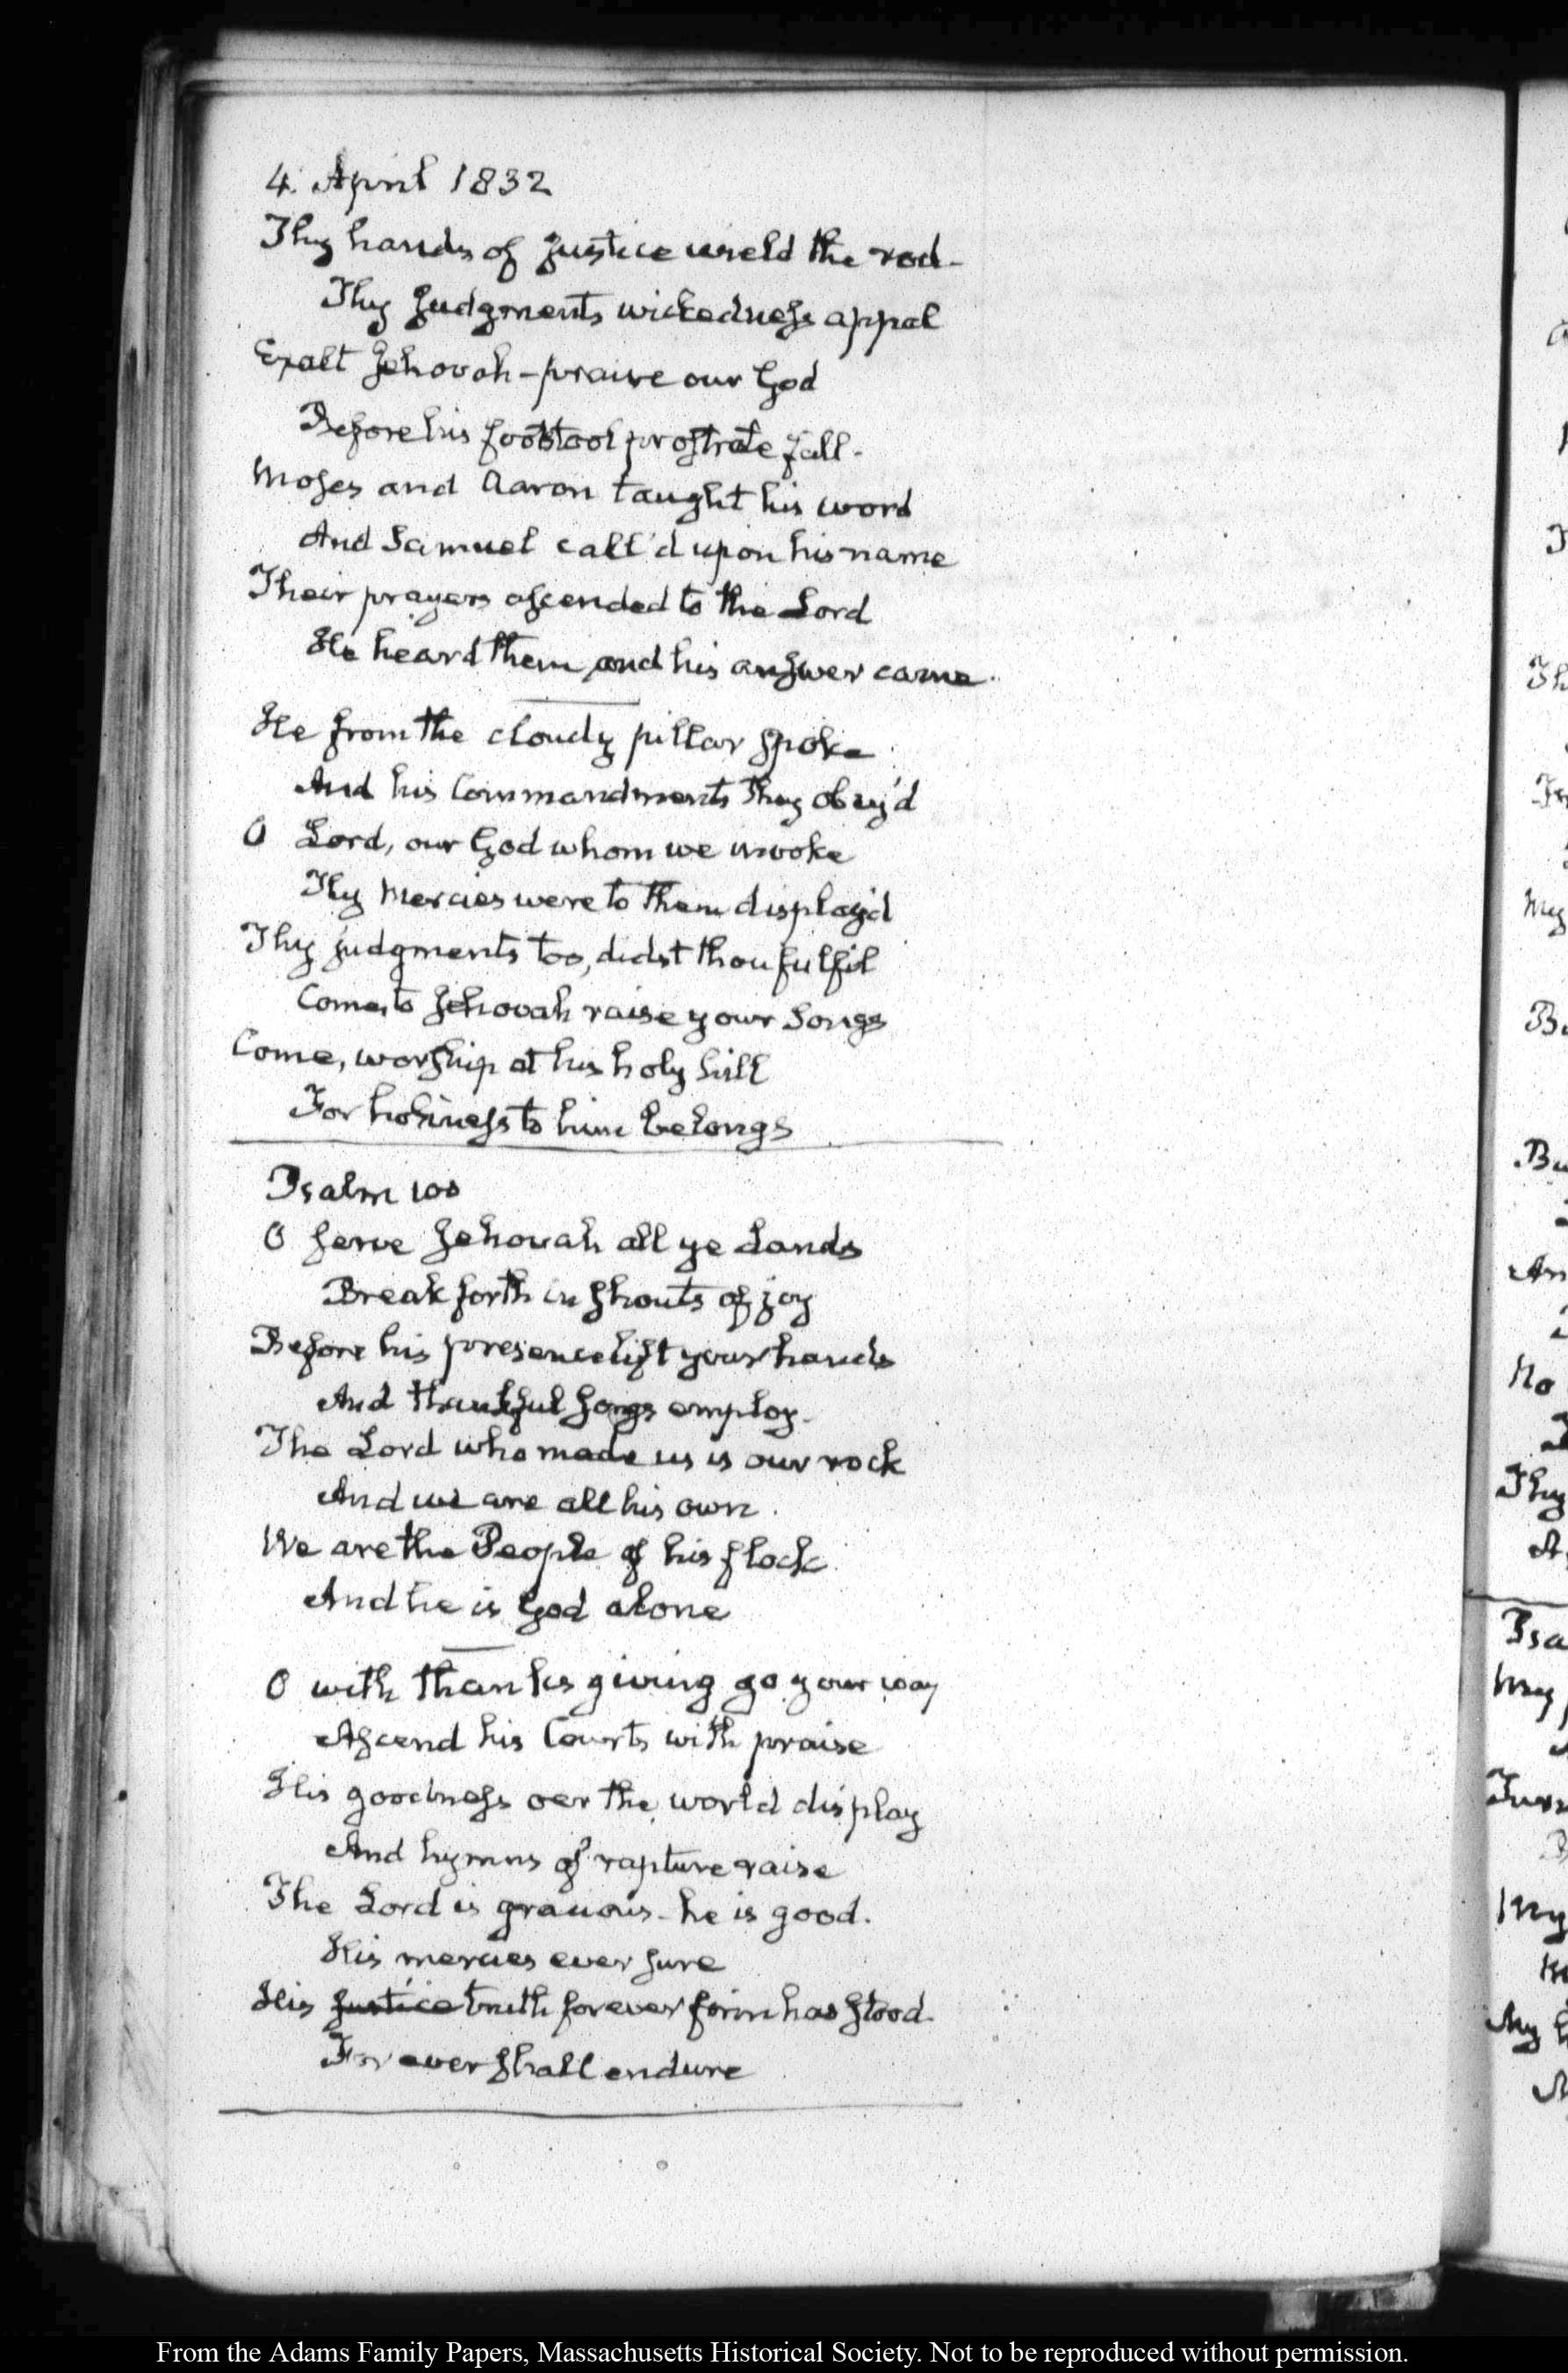 4. April 1832
Thy hands of Justice wield the rod-
Thy Judgments wickedness appal
Exalt Jehovah - praise our God
Before his footstool prostrate fall.
Moses and Aaron taught his word
And Samuel call'd upon his name
Their prayers ascended to the Lord
He heard them and his answer came.
He from the cloudy pillar spoke
And his Commandments they obey'd
O Lord, our God whom we invoke
Thy Mercies were to them display'd
Thy judgments too, didst thou fulfil
Come, to Jehovah raise your Songs
Come, worship at his holy hill
For holiness to him belongs
Psalm 100
O serve Jehovah all ye Lands
Break forth in shouts of joy
Before his presence lift your hands
And thankful songs employ.
The Lord who made us is our rock
And we are all his own.
We are the People of his flock
And he is God alone
O with thanksgiving go your way
Ascend his Courts with praise
His goodness oer the world display
And hymns of rapture raise
The Lord is gracious - he is good.
His mercies ever sure
His Justice truth forever firm has stood.
For ever shall endure
From the Adams Family Papers, Massachusetts Historical Society. Not to be reproduced without permission.